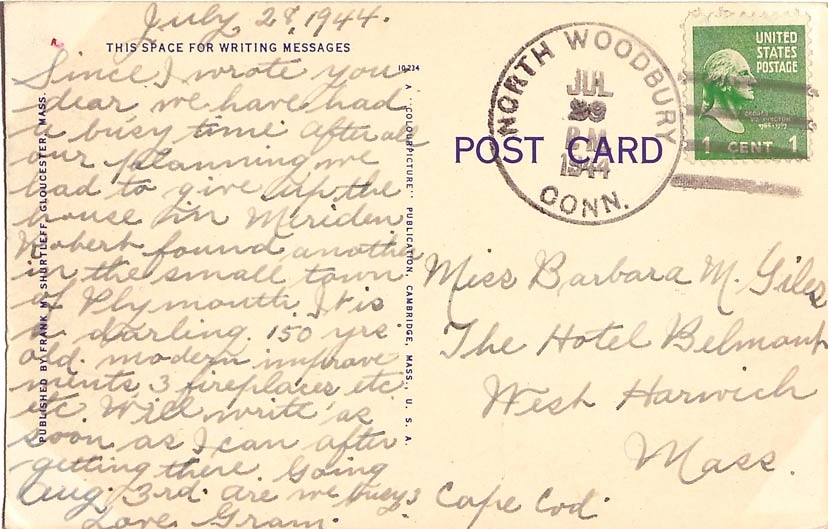 July 28, 1944.
THIS SPACE FOR WRITING MESSAGES
Since I wrote you
dear we have had
a busy time After all
our planning we
had to give up the
house in Meriden
Robert found another
in the small town
of Plymouth It is
a darling. 150 yrs.
old. modern improve
ments 3 fireplaces etc
etc Will write as
soon as I can after
getting there. Going
Aug. 3rd. Are we busy?
Love Gram.
PUBLISHED BY FRANK M. SHURTLEFF, GLOUCESTER, MASS.
10234
A "COLOURPICTURE" PUBLICATION, CAMBRIDGE, MASS., U. S. A.
POST CARD
NORTH WOODBURY
JUL
29
P.M.
1944
CONN.
UNITED
STATES
POSTAGE
GEORGE
WASHINGTON
1789-1797
1 CENT 1
Miss Barbara M. Giles
The Hotel Belmont
West Harwich
Mass.
Cape Cod.